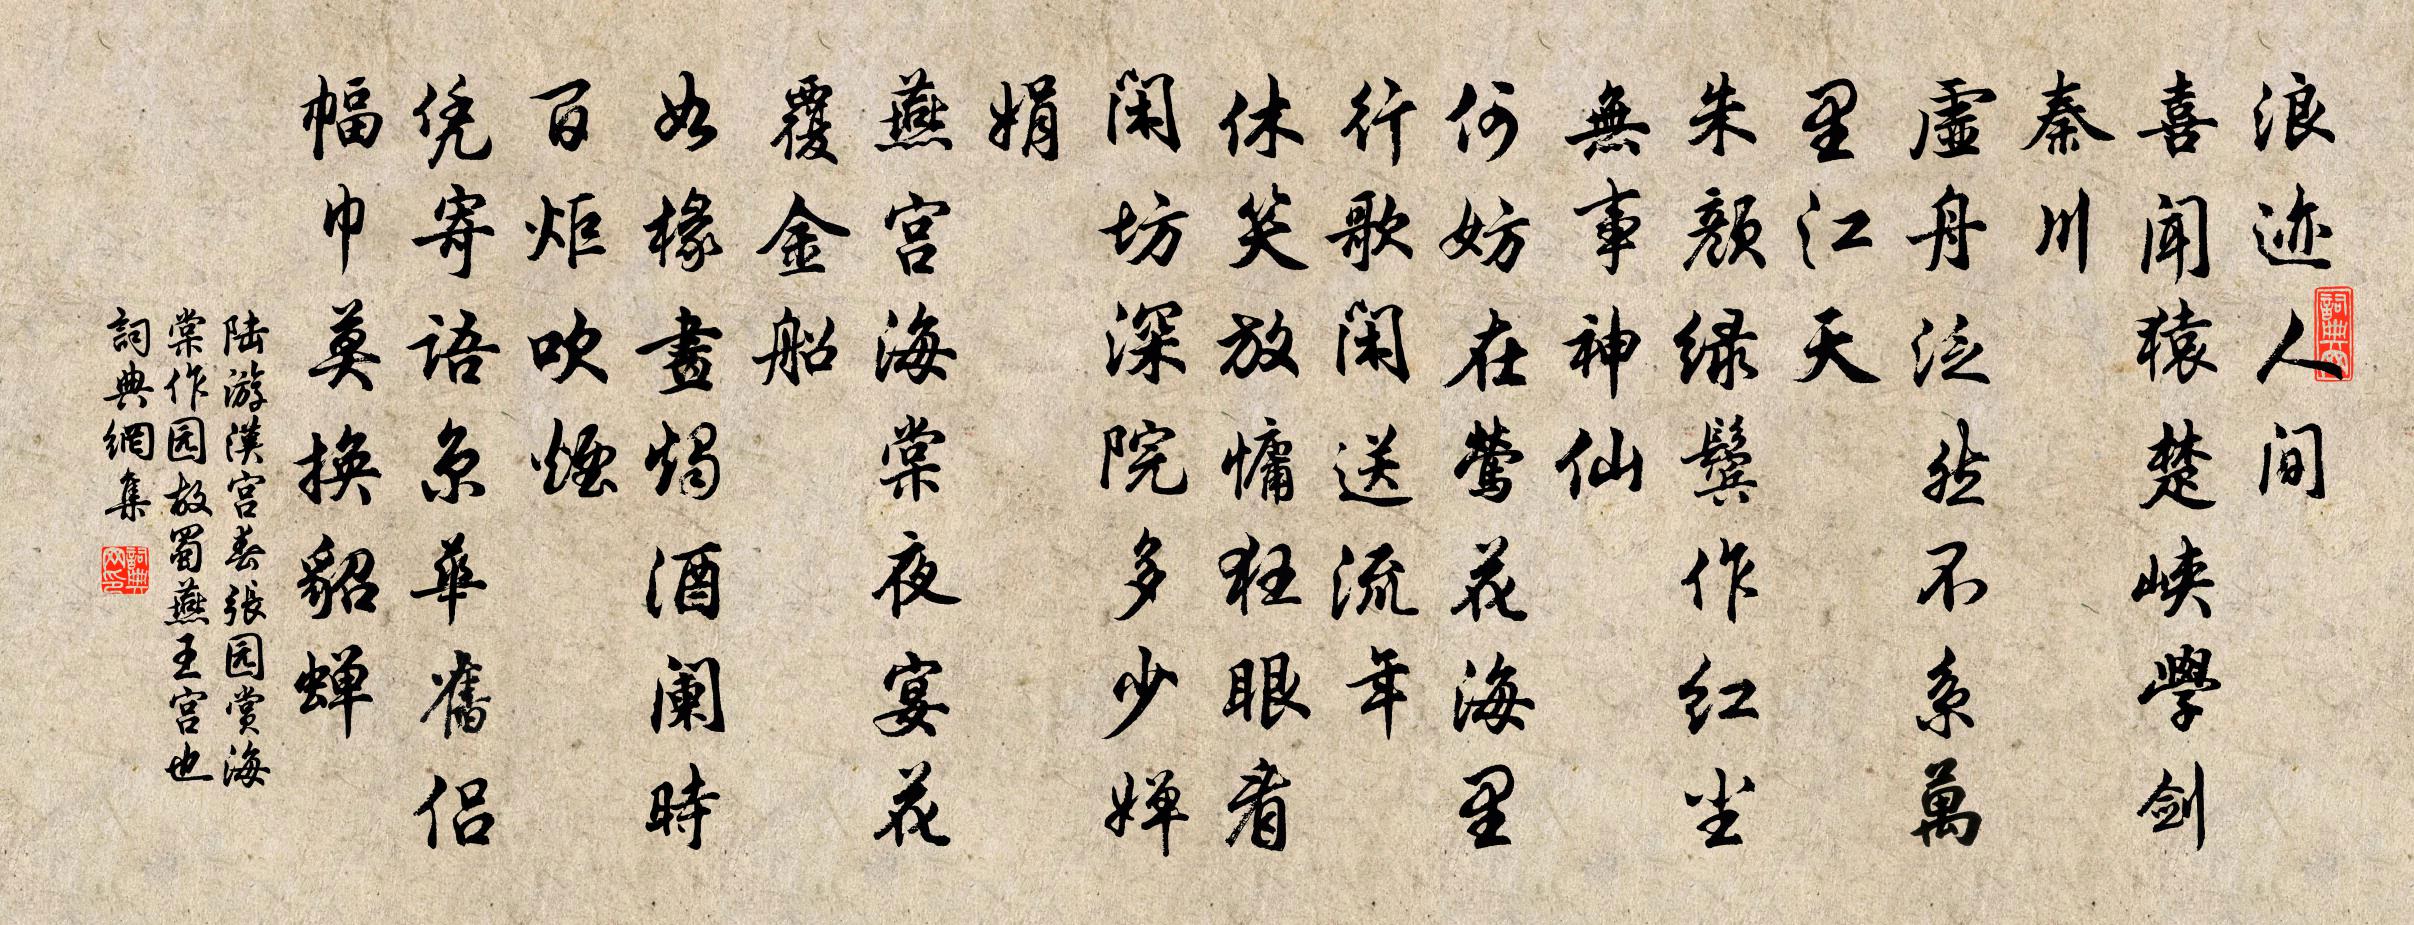 浪迹人间
喜闻猿楚峡學剑
秦川
虚舟泛然不系萬
里江天
朱颜绿鬓作红尘
無事神仙
何妨在莺花海里
行歌闲送流年
休笑放慵狂眼看
闲坊深院多少婵
娟
燕宫海棠夜宴花
覆金船
如椽畫燭酒阑時
百炬吹煙
凭寄语京華舊侣
幅巾莫换貂蝉
陆游漢宫春張园赏海
棠作园故蜀燕王宫也
詞典網集
詞典网
詞典网印